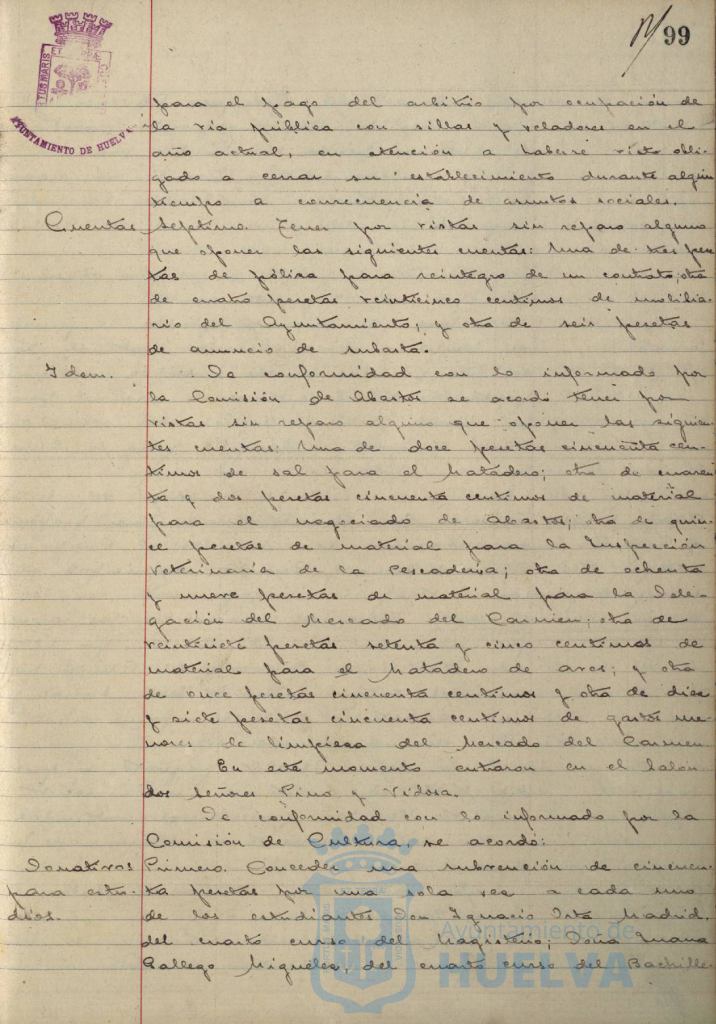 99
AYUNTAMIENTO DE HUELVA
para el pago del arbitrio por ocupación de
la via pública con sillas y veladores en el
año actual, en atención a haberse visto obli-
gado a cerrar su establecimiento durante algún
tiempo a consecuencia de asuntos sociales.
Cuentas Septimo. Tener por vistas sin reparo alguno
que oponer las siguientes cuentas: Una de tres pese-
tas de póliza para reintegro de un contrato; otra
de cuatro pesetas veinticinco centimos de mobilia-
rio del Ayuntamiento; y otra de seis pesetas
de anuncio de subasta.
Idem. De conformidad con lo informado por
la Comisión de Abastos se acordó tener por
vistas sin reparo alguno que oponer las siguien-
tes cuentas: Una de doce pesetas cincuenta cen-
timos de sal para el Matadero; otra de cuaren-
ta y dos pesetas cincuenta centimos de material
para el negociado de Abastos; otra de quin-
ce pesetas de material para la Inspección
Veterinaria de la Pescadería; otra de ochenta
y nueve pesetas de material para la Dele-
gación del Mercado del Carmen; otra de
veintisiete pesetas setenta y cinco centimos de
material para el Matadero de aves; y otra
de once pesetas cincuenta centimos y otra de diez
y siete pesetas cincuenta centimos de gastos me-
nores de limpieza del Mercado del Carmen.
En este momento entraron en el Salón
dos señores Pino y Vidosa.
De conformidad con lo informado por la
Comisión de Cultura, se acordó:
Donativos para estu-
dios.
Primero. Conceder una subvención de cincuen-
ta pesetas por una sola vez a cada uno
de los estudiantes Don Ignacio Madrid,
del cuarto curso del Magisterio; Doña Juana
Gallego Miguelez, del cuarto curso del Bachille-
Ayuntamiento de
HUELVA